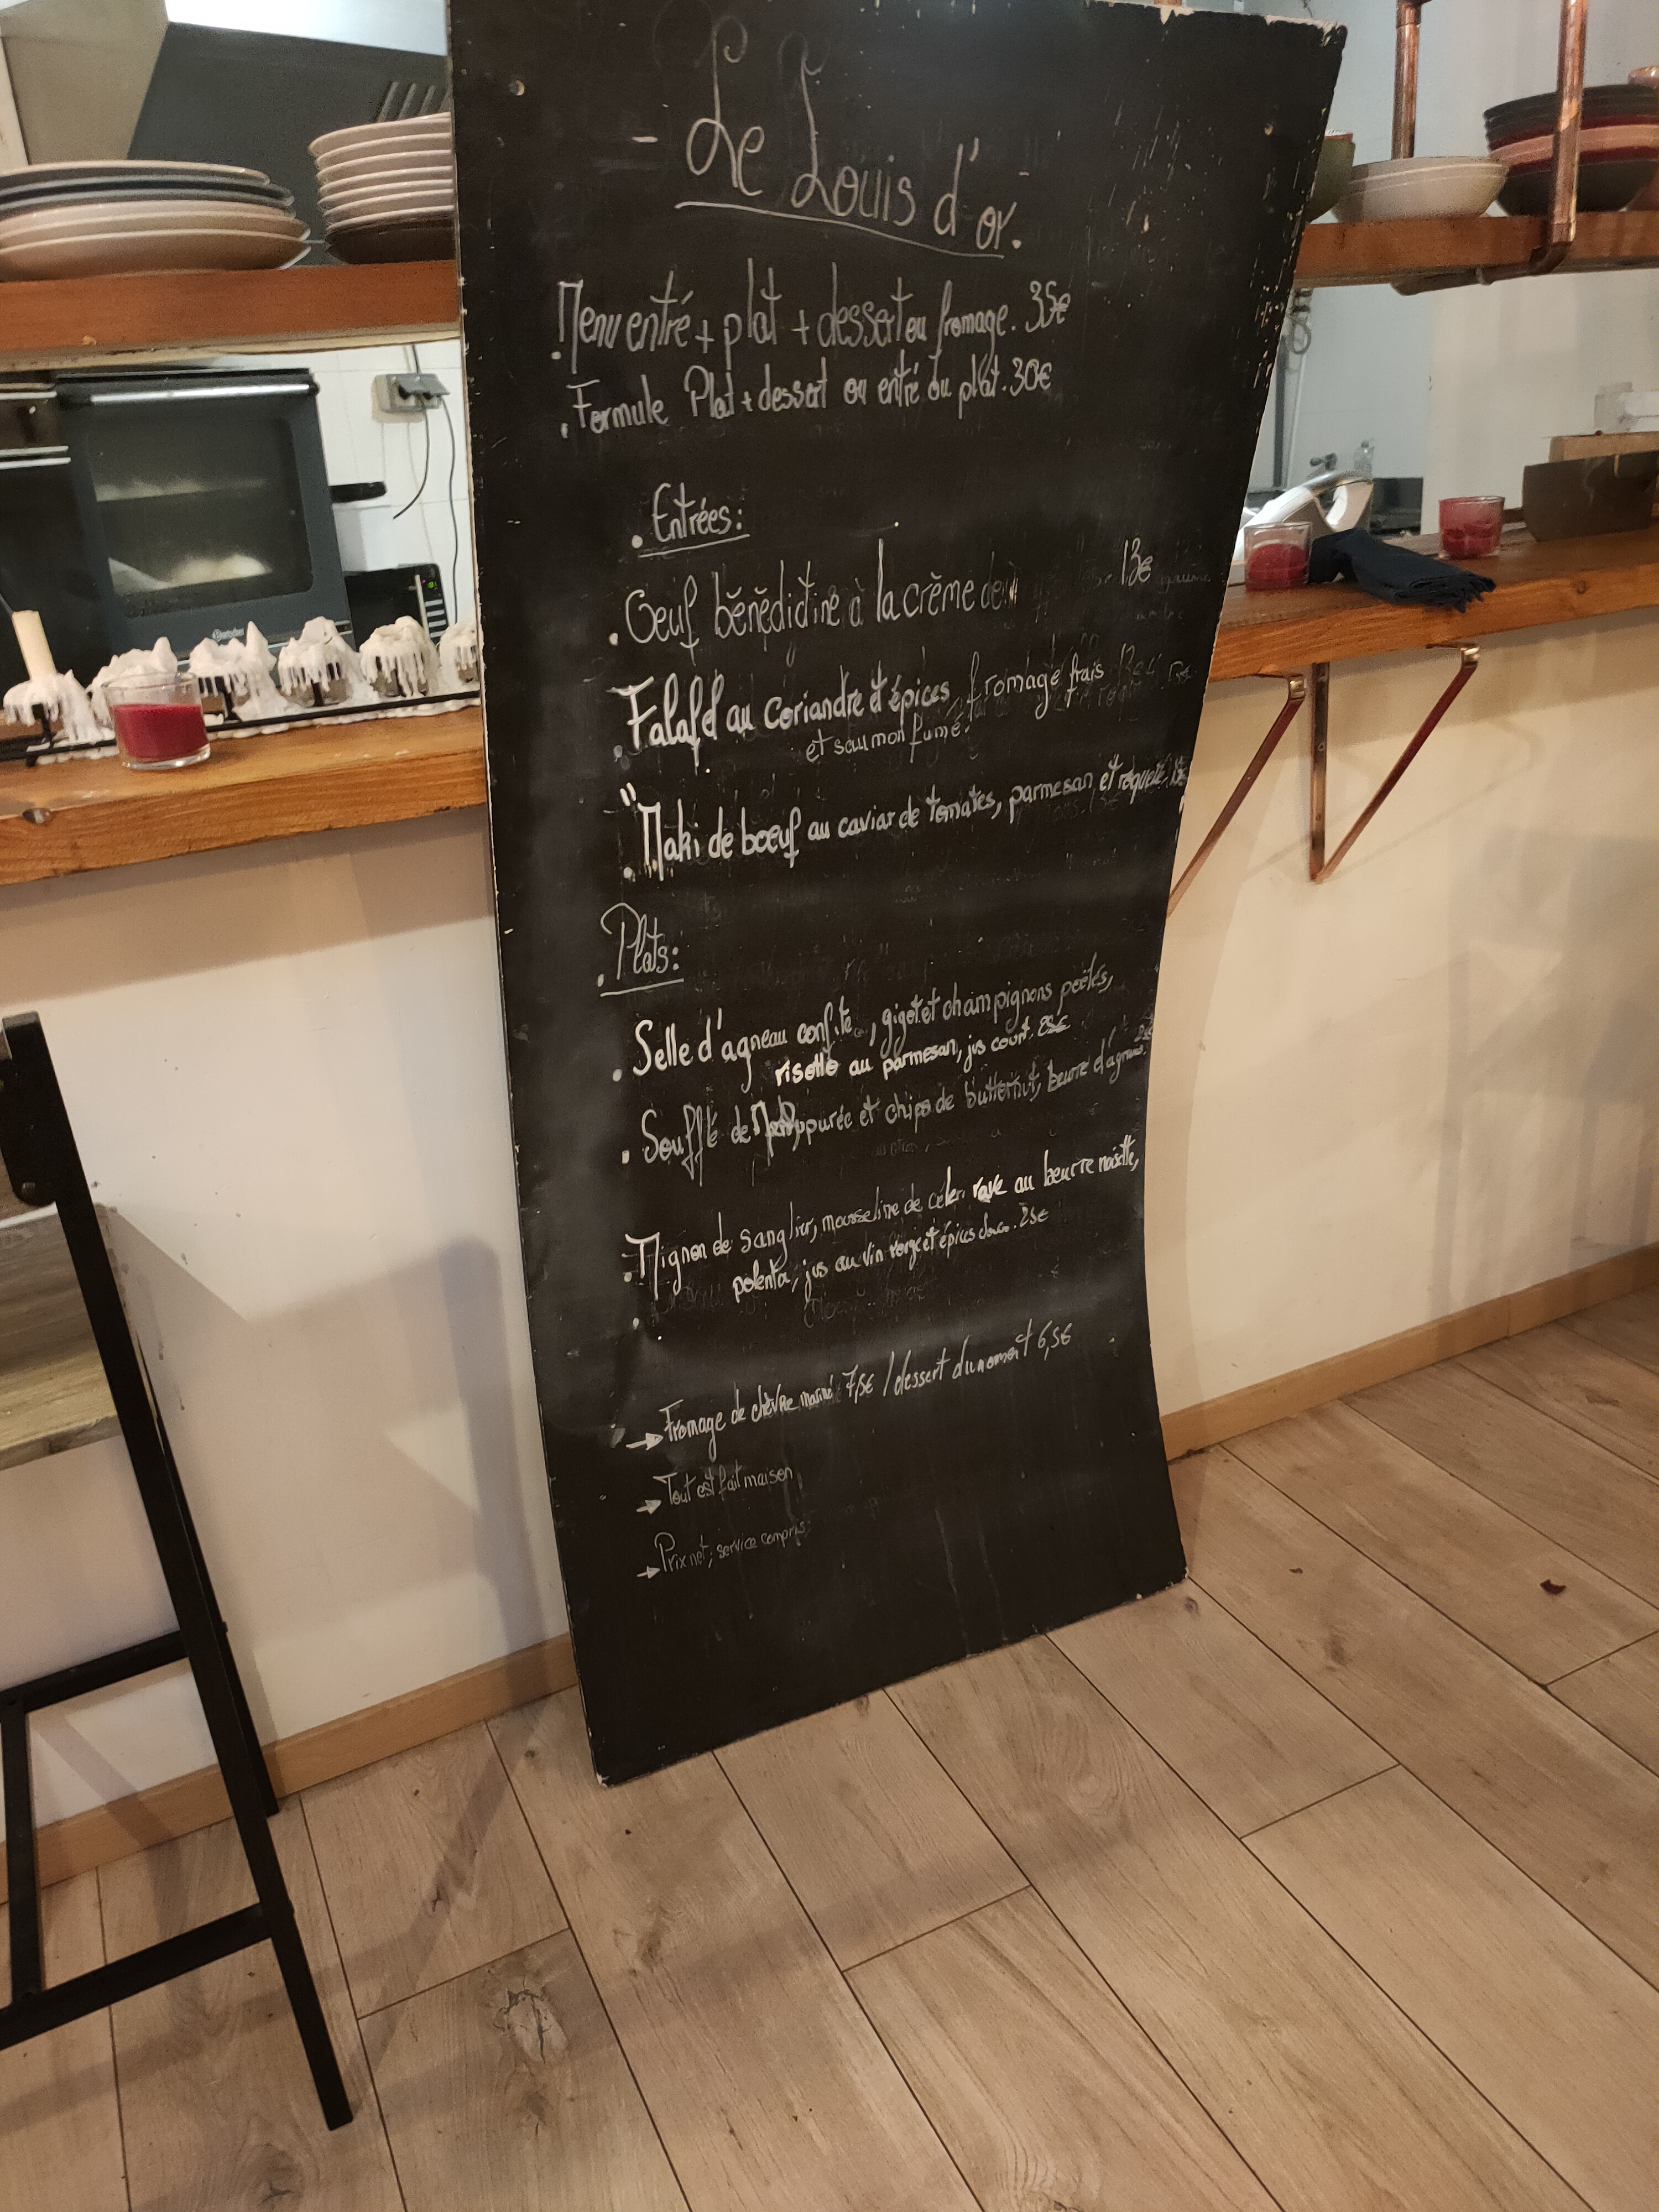 - Le Louis d'or.
. Menu entré + plat + dessert ou fromage. 35€
. Formule Plat + dessert ou entré ou plat. 30€
. Entrées:
. Oeuf bénédictine à la crème de 13€
. Falafel au coriandre et épices, fromage frais
et saumon fumé.
. "Maki de boeuf au caviar de tomates, parmesan et roquette.
. Plats:
. Selle d'agneau confite, gigot et champignons poêlés,
risotto au parmesan, jus court. 25€
. Soufflé de purée et chips de butternut, beurre d'agrumes.
. Mignon de sanglier, mousseline de céleri rave au beurre noisette,
polenta, jus au vin rouge et épices douces. 25€
→ Fromage de chèvre mariné 7,5€ / dessert du moment 6,5€
→ Tout est fait maison
→ Prix net; service compris.